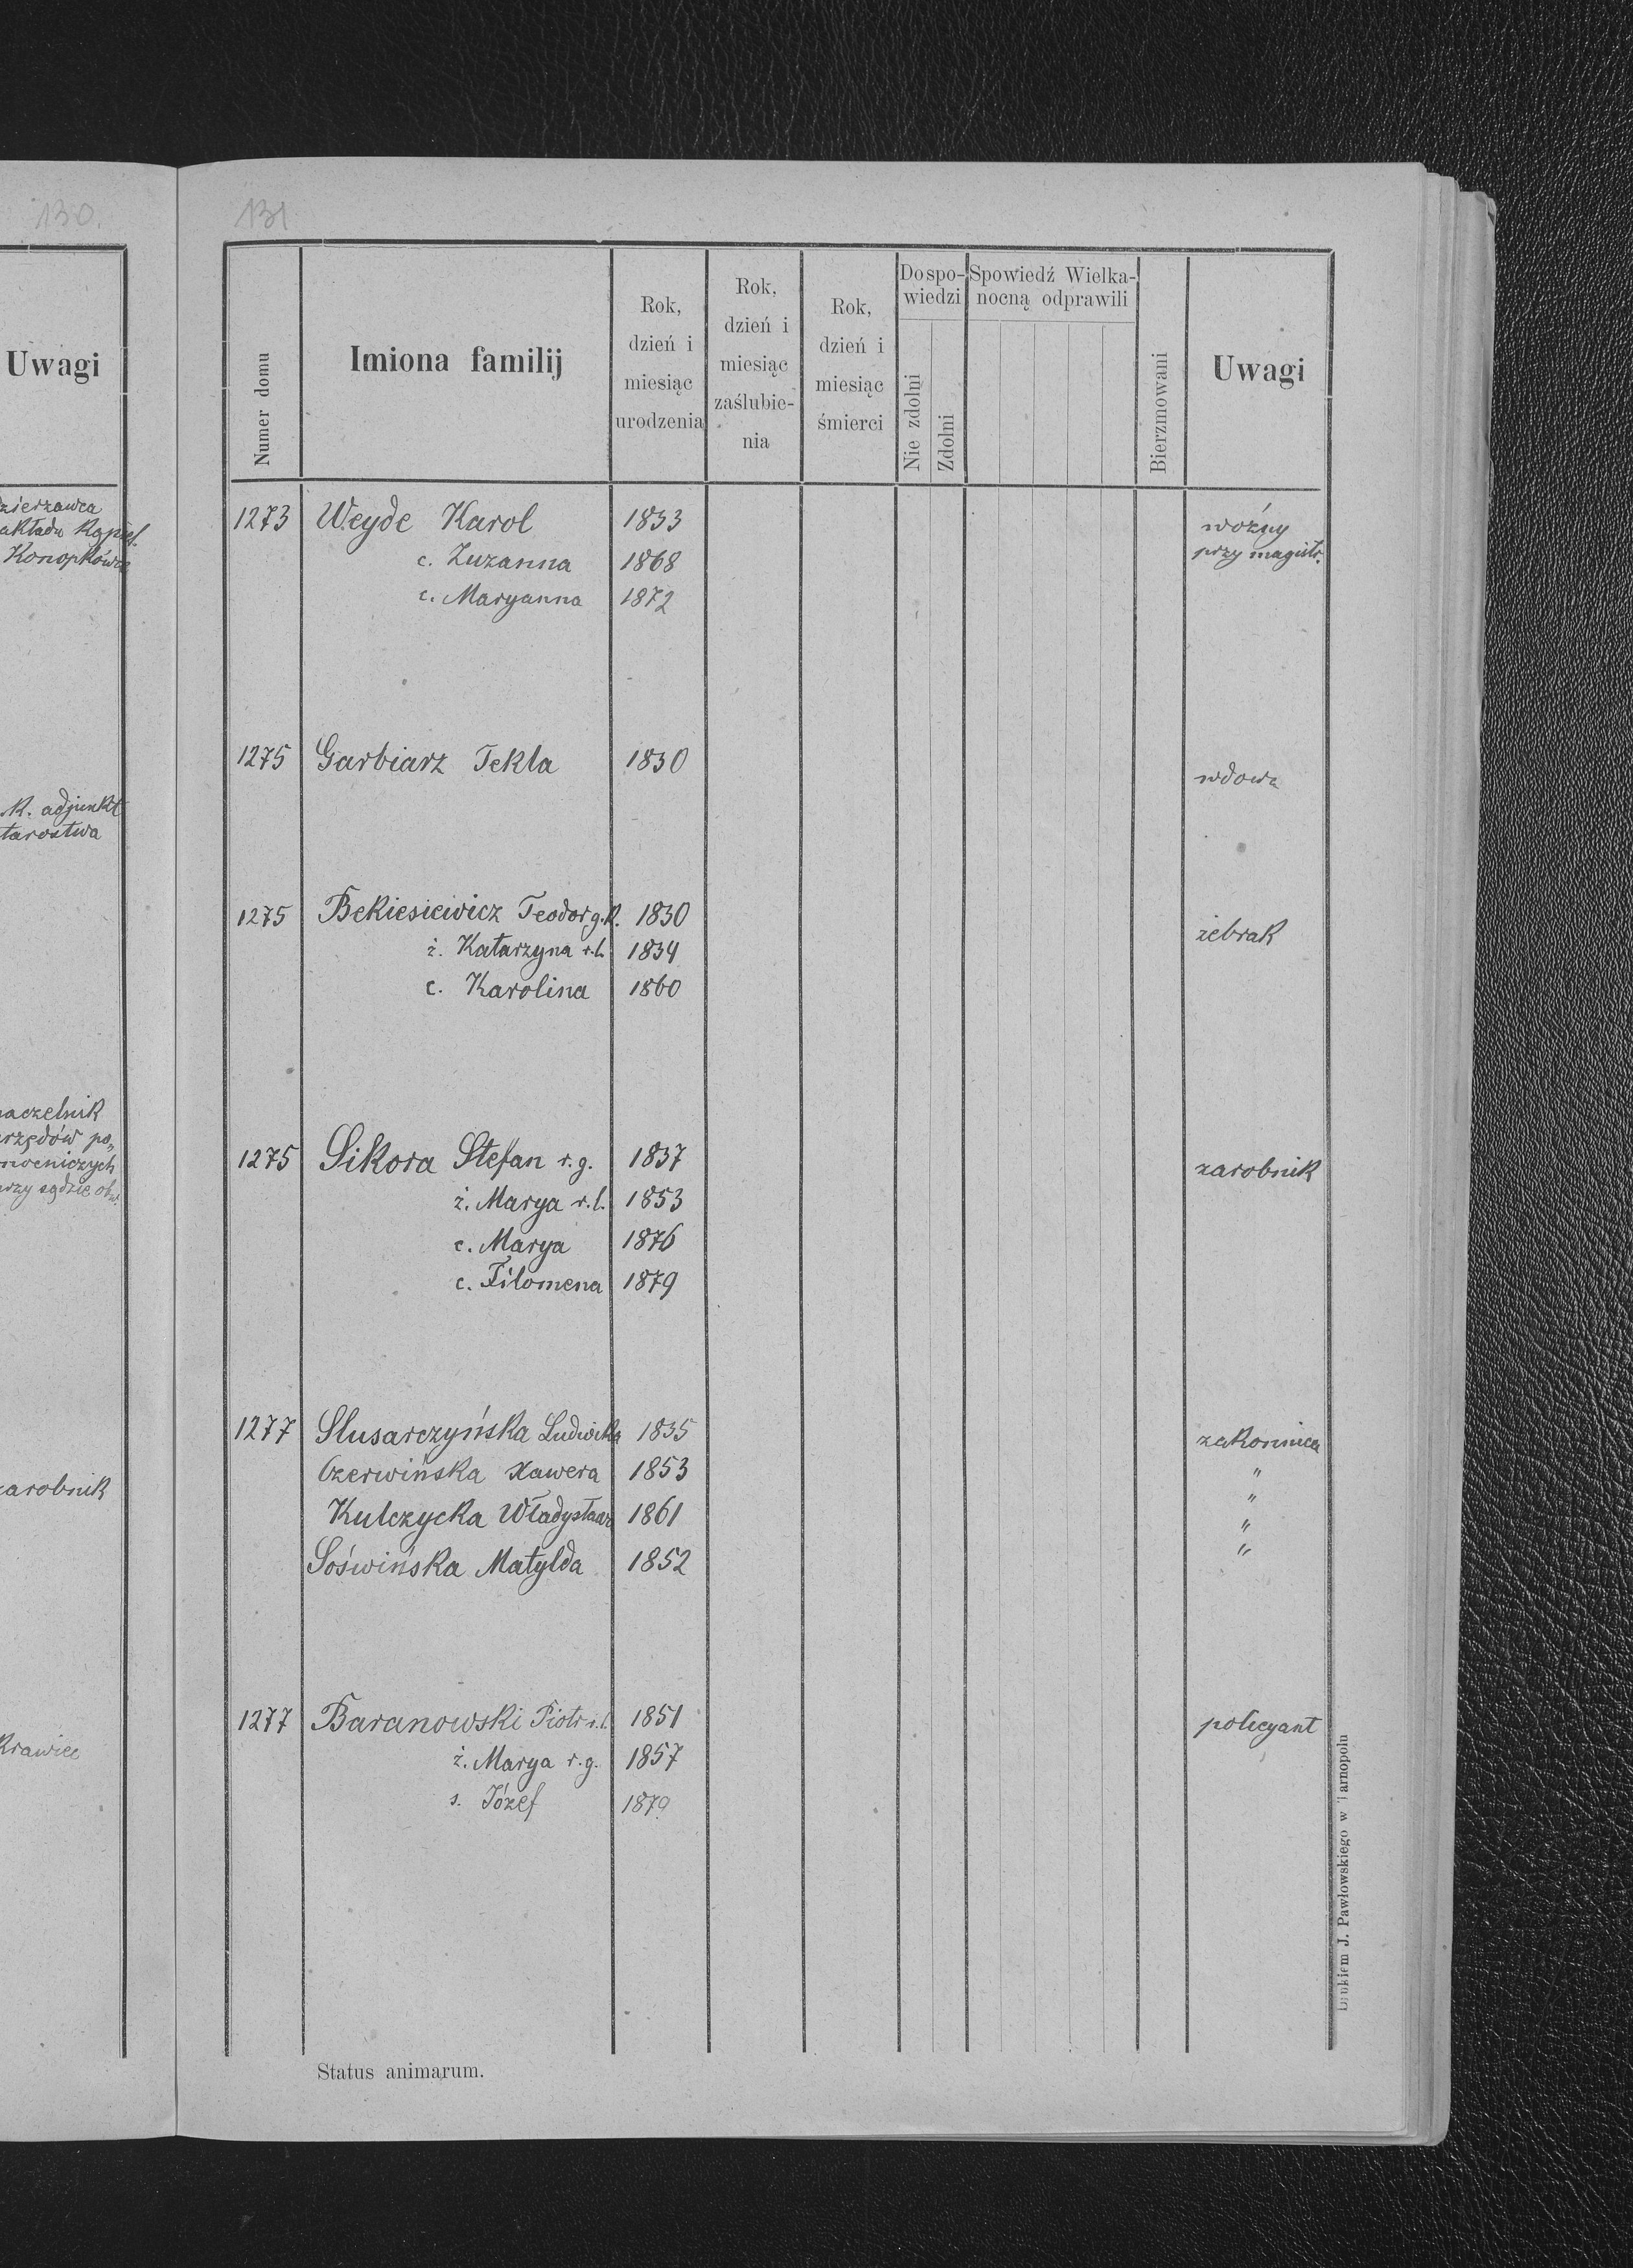 130.
Uwagi
dzierzawca
akładu Kąpiel.
Konopkówce
K. adjunkt
tarostwa
naczelnik
urzędów po„
mocniczych
przy sądzie obw.
zarobnik
Krawiec
131
Numer domu
Imiona familij
Rok, dzień i miesiąc urodzenia
Rok, dzień i miesiąc zaślubie-nia
Rok, dzień i miesiąc śmierci
Do spo-wiedzi
Nie zdolni
Zdolni
Spowiedź Wielka-nocną odprawili
Bierzmowani
Uwagi
1273 Weyde Karol 1833 woźny
c. Zuzanna 1868 przy magistr.
c. Maryanna 1872
1275 Garbiarz Tekla 1830 wdowa
1275 Bekiesiewicz Teodor g.k. 1830 żebrak
ż. Katarzyna r.l. 1834
c. Karolina 1860
1275 Sikora Stefan r.g. 1837 zarobnik
ż. Marya r.l. 1853
c. Marya 1876
c. Filomena 1879
1277 Slusarczyńska Ludwika 1835 zakonnica
Czerwińska Xawera 1853 "
Kulczycka Władysława 1861 "
"
Soświńska Matylda 1852 "
1277 Baranowski Piotr r.l. 1851 policyant
ż. Marya r.g. 1857
s. Józef 1879
Status animarum.
Drukiem J. Pawłowskiego w Tarnopolu